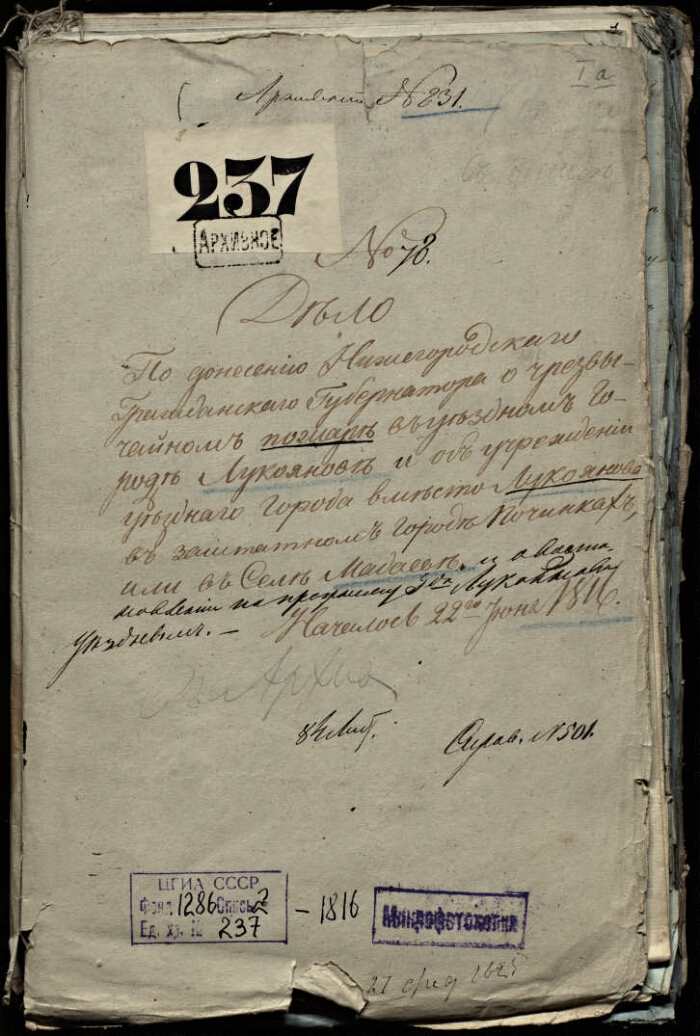 I а
Архивный № 231.
237
АРХИВНОЕ
№ 78.
Дѣло
По донесенію Нижегородскаго
Гражданскаго Губернатора о чрезвы-
чайномъ пожарѣ въ уѣздномъ Го-
родѣ Лукояновѣ и объ учрежденіи
уѣзднаго города вмѣсто Лукоянова
въ заштатномъ городѣ Починкахъ,
или въ Селѣ Мадаевѣ. и о возста-
новленіи по прежнему Лукоянова
Уѣзднымъ. —
Началось 22го Іюня 1816.
Въ Архив
Справ. № 501.
ЦГИА СССР
Фонд 1286 Опись 2
Ед. хр. № 237
– 1816
Микрофотокопия